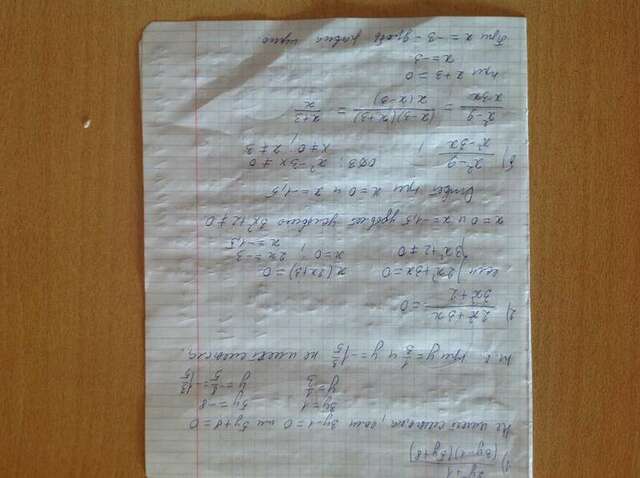 1) 2y+1
(3y-1)(5y+8)
Не имеет смысла, если 3y-1=0 или 5y+8=0
3y=1 5y=-8
y=1/3 y=-8/5=-1 3/5
т.е. при y=1/3 и y=-1 3/5 не имеет смысла.
2) 2x²+3x / 3x²+2 =0
если 2x²+3x=0 x(2x+3)=0
3x²+2≠0 x=0; 2x=-3
x=-1,5
x=0 и x=-1,5 удовлет условию 3x²+2≠0
Ответ при x=0 и x=-1,5
б) x²-9 / x²-3x ; ОДЗ: x²-3x≠0
x≠0; x≠3
x²-9 / x²-3x = (x-3)(x+3) / x(x-3) = x+3 / x
при x+3=0
x=-3
При x=-3 - дробь равна нулю.